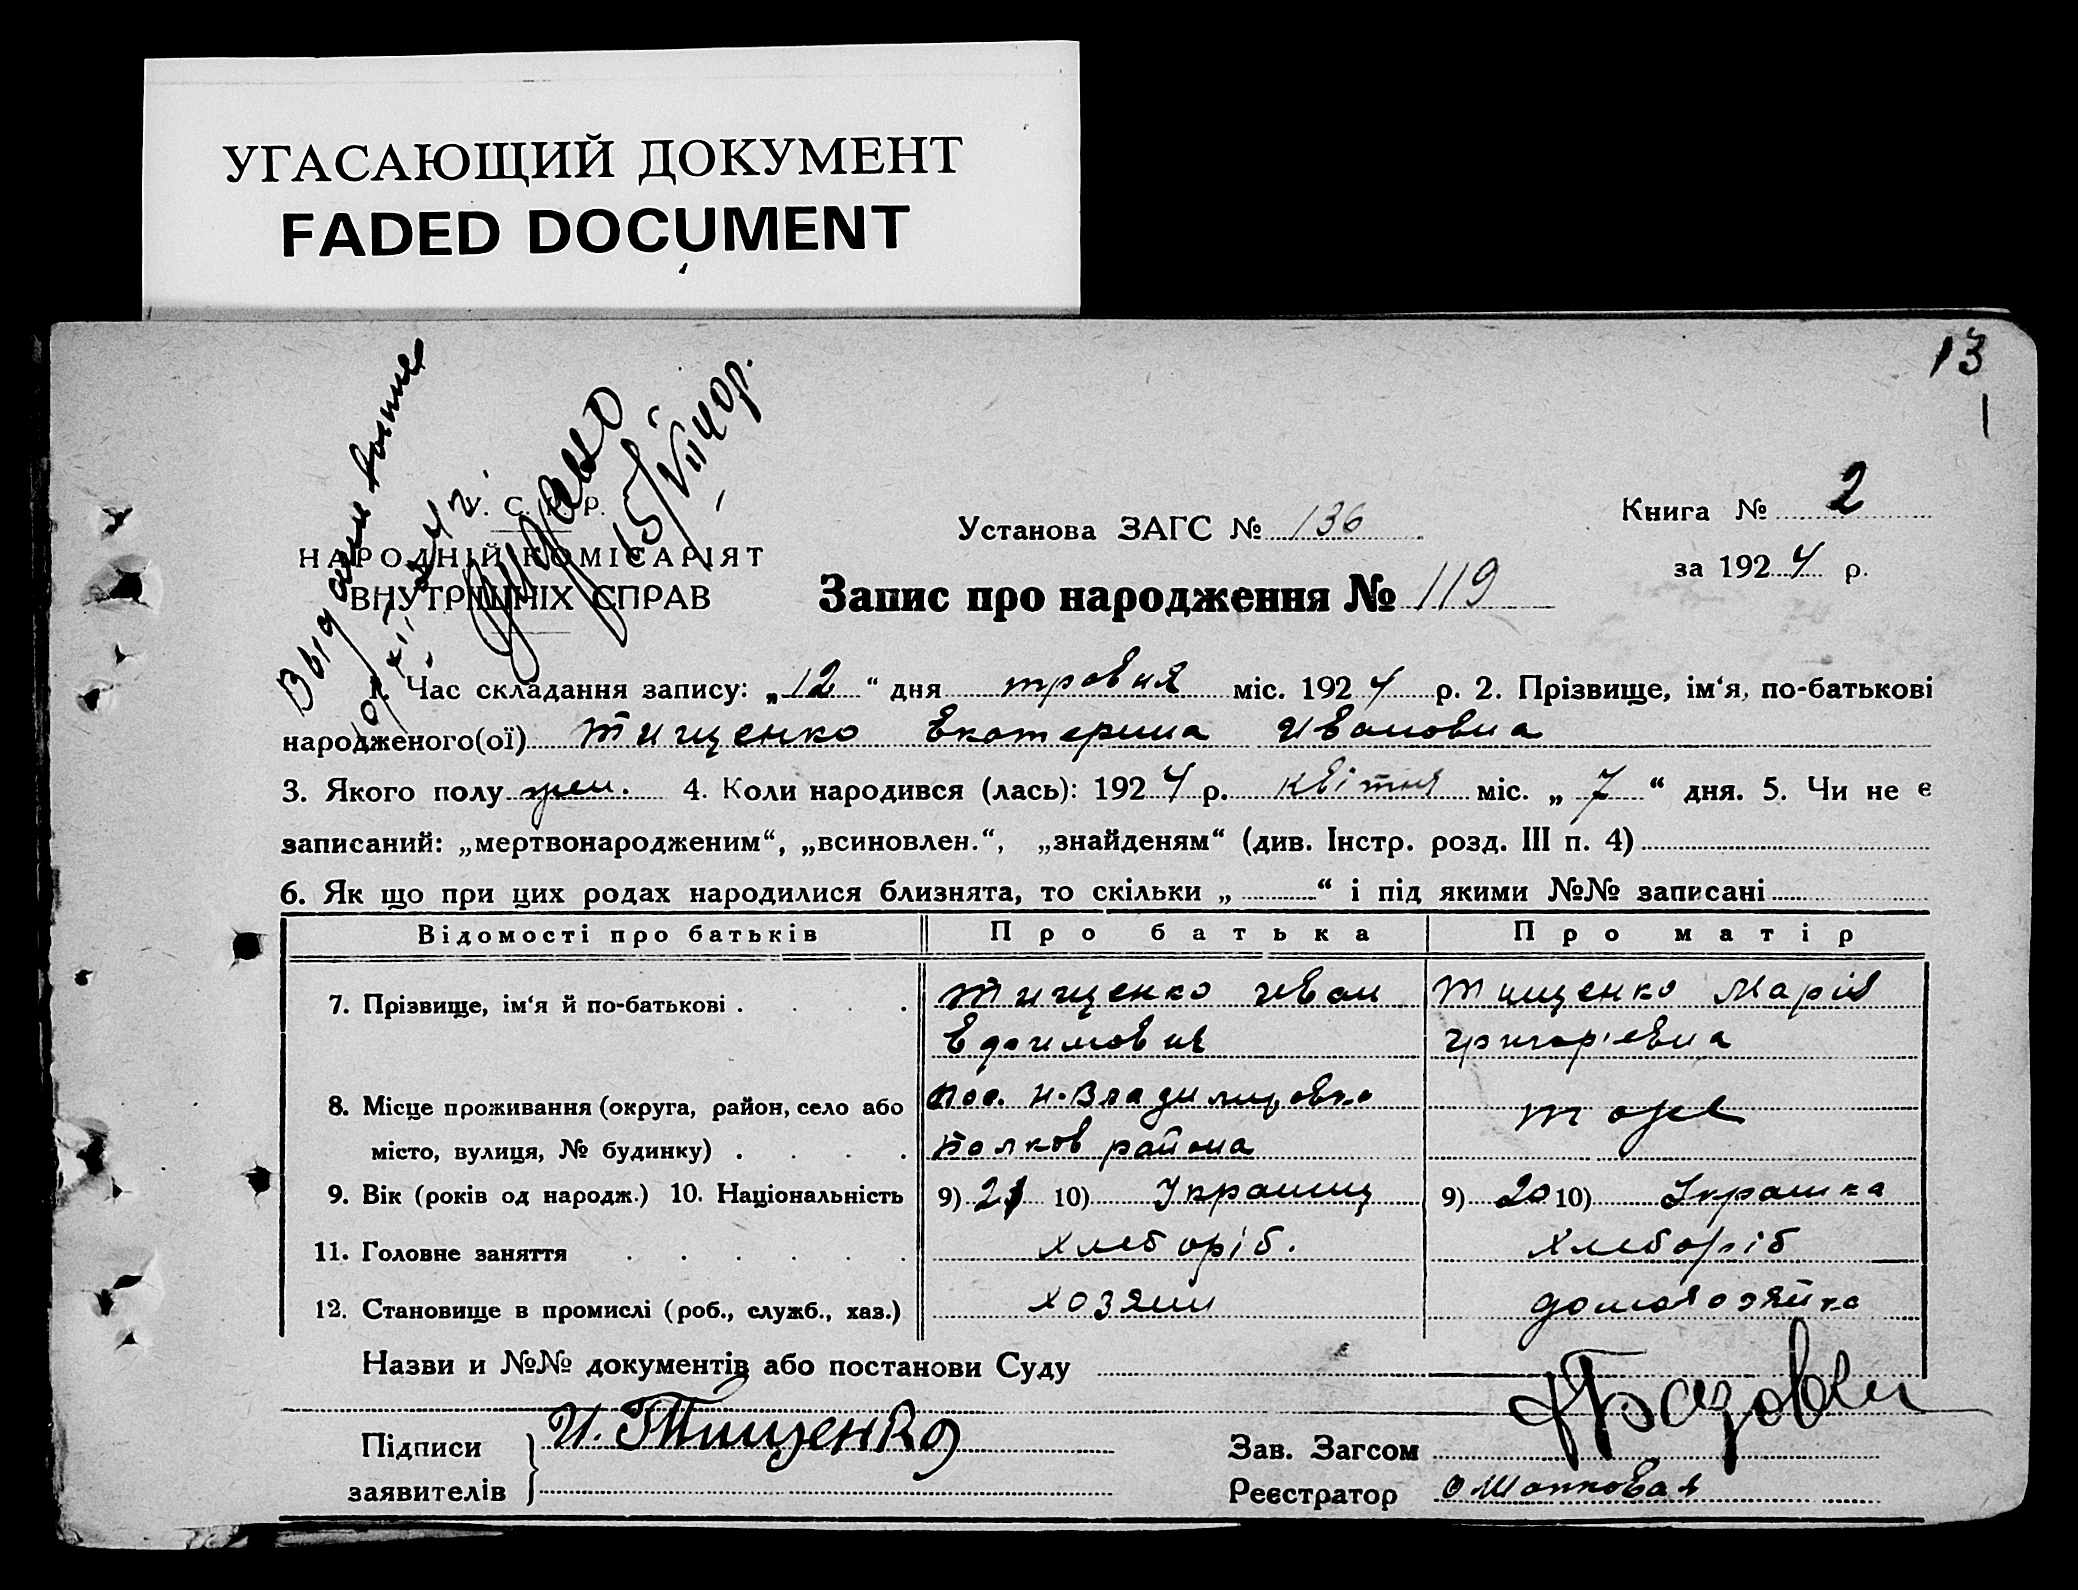 УГАСАЮЩИЙ ДОКУМЕНТ
FADED DOCUMENT
13
У. С. Р. Р.
НАРОДНІЙ КОМІСАРІЯТ
ВНУТРІШНІХ СПРАВ
Установа ЗАГС № 136
Книга № 2
за 1924 р.
Запис про народження № 119
1. Час складання запису: „12“ дня травня міс. 1924 р. 2. Прізвище, ім‘я, по-батькові
народженого(ої) Тищенко Екатерина Ивановна
3. Якого полу жен. 4. Коли народився (лась): 1924 р. квітня міс. „7“ дня. 5. Чи не є
записаний: „мертвонародженим“, „всиновлен.“, „знайденям“ (див. Інстр. розд. III п. 4)
6. Як що при цих родах народилися близнята, то скільки „ “ і під якими №№ записані
Відомості про батьків Про батька Про матір
7. Прізвище, ім‘я й по-батькові . Тищенко Иван Тищенко Марія
Ефимовия Григор'евна
8. Місце проживання (округа, район, село або Пос. Н-Владимировка тоже
місто, вулиця, № будинку) . Волков района
9. Вік (років од народж.) 10. Національність 9) 21 10) Украинц 9) 20 10) Украинка
11. Головне заняття хлеборіб. хлеборіб
12. Становище в промислі (роб., служб., хаз.) хозяин домохозяйка
Назви и №№ документів або постанови Суду
Підписи И. Тищенко
заявителів
Зав. Загсом
Реєстратор